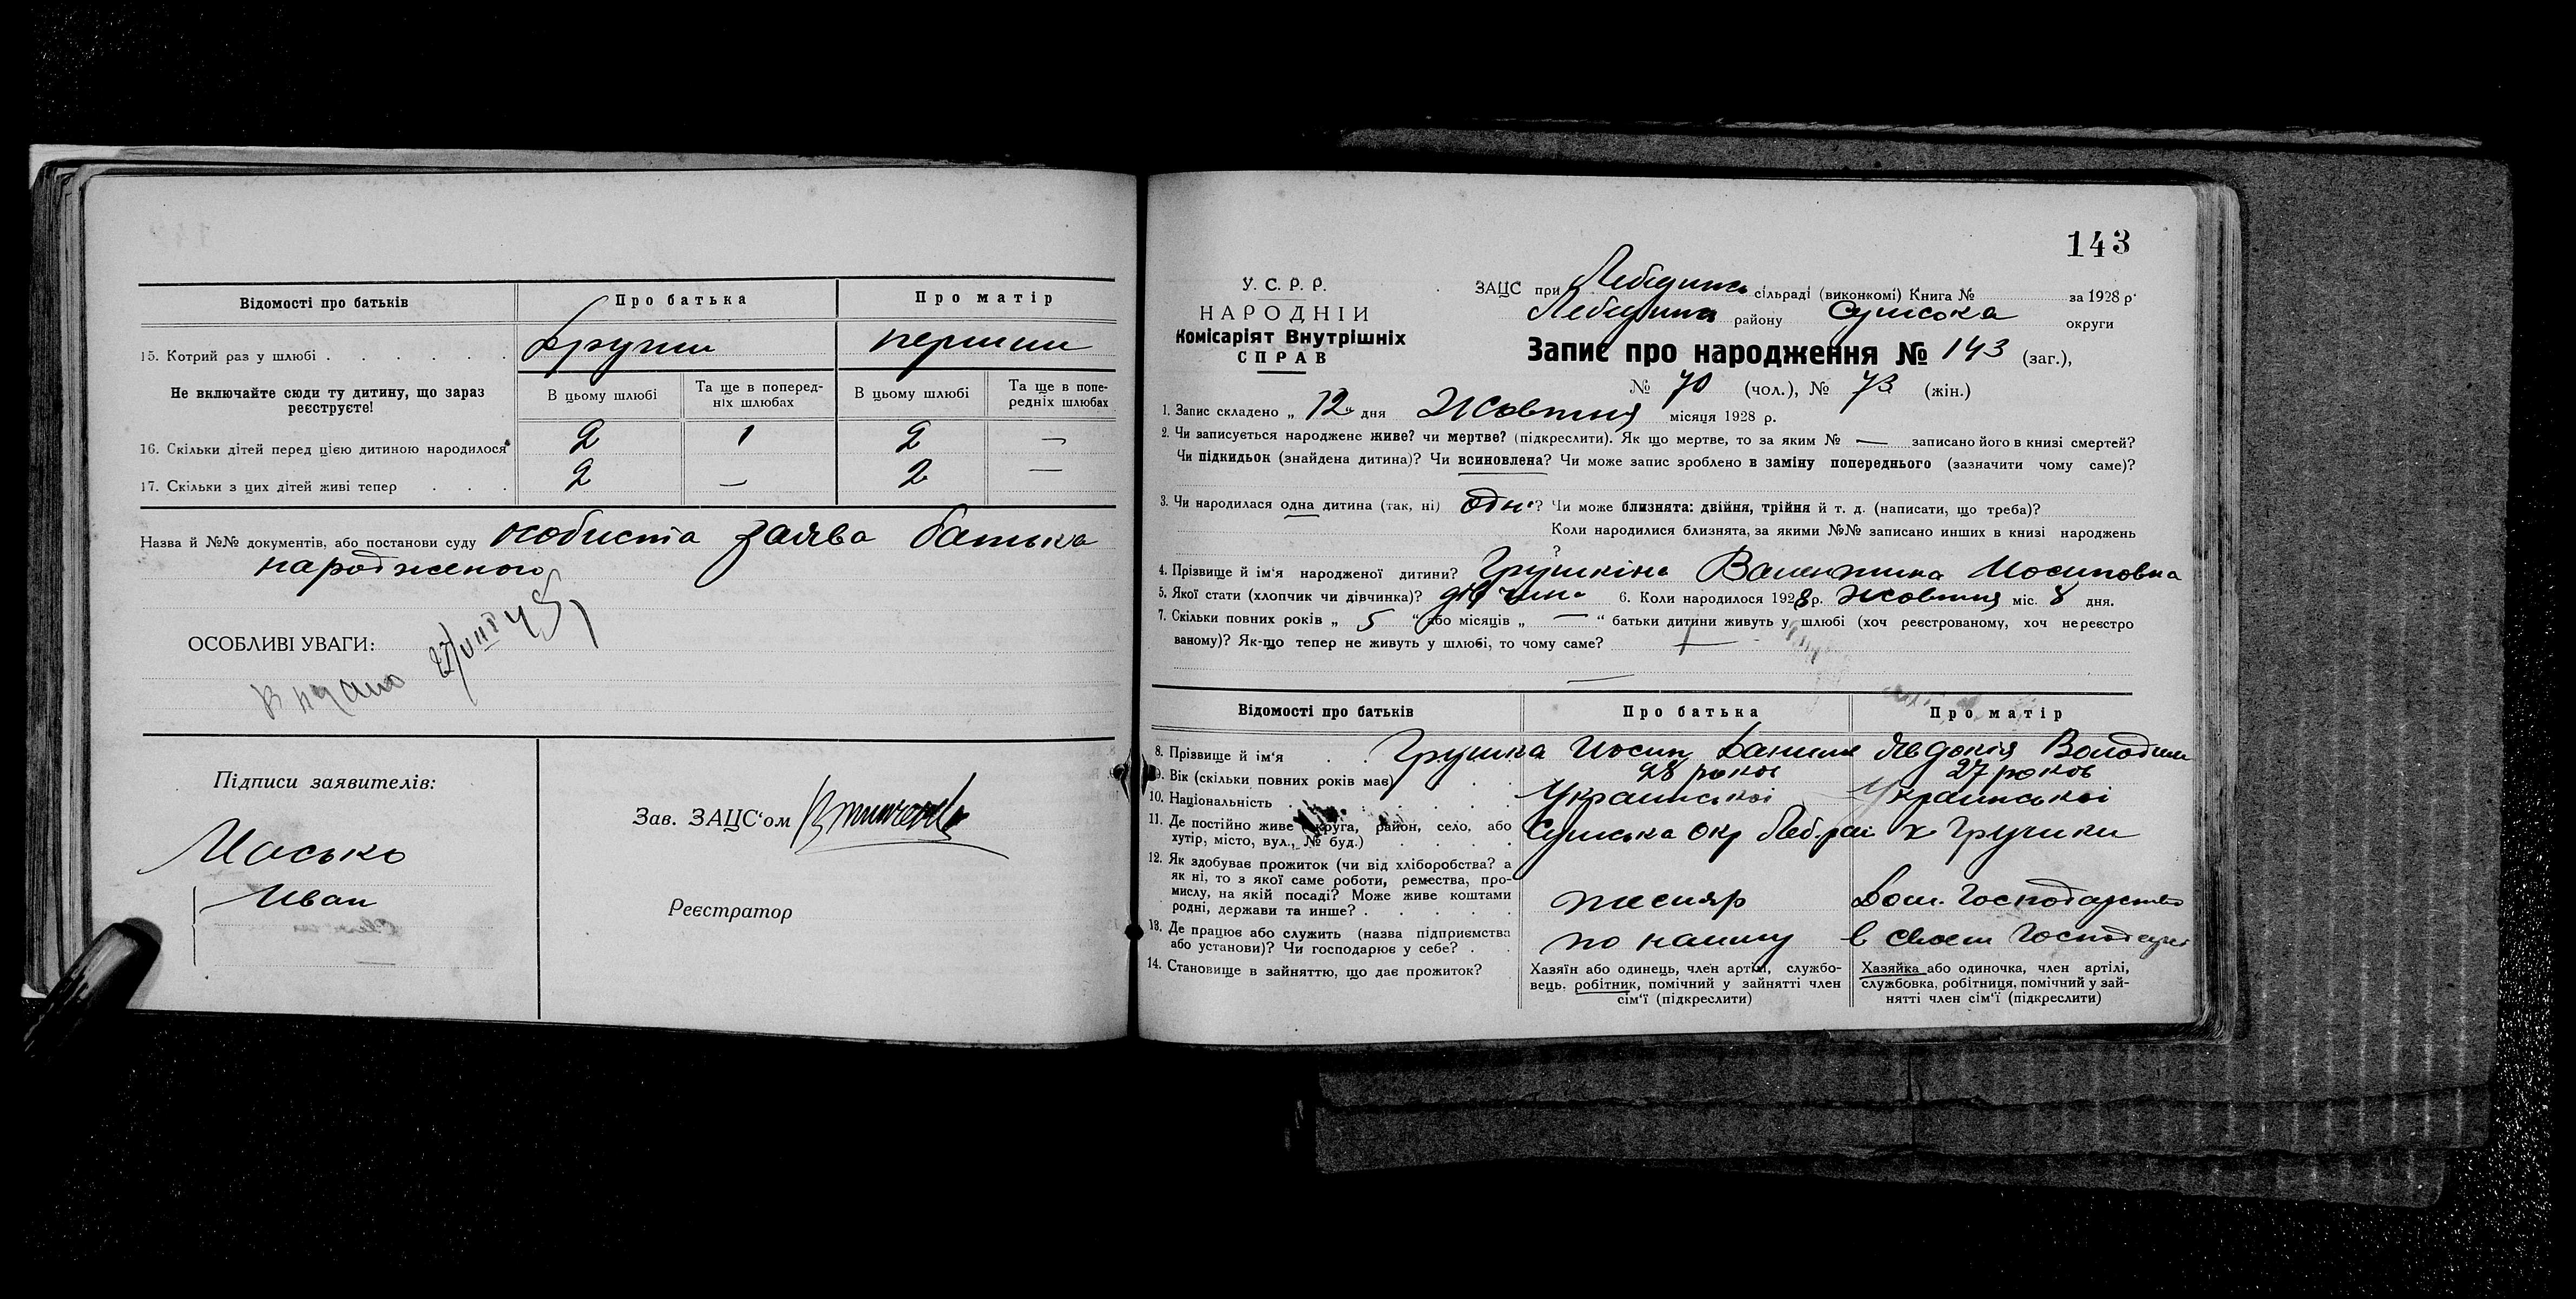 Відомості про батьків
Про батька
Про матір
15. Котрий раз у шлюбі . . . . . .
други
перший
Не включайте сюди ту дитину, що зараз
реєструєте!
В цьому шлюбі
Та ще в поперед-
ніх шлюбах
В цьому шлюбі
Та ще в попе-
редніх шлюбах
16. Скільки дітей перед цією дитиною народилося
2
1
2
—
17. Скільки з цих дітей живі тепер . . .
2
—
2
—
Назва й №№ документів, або постанови суду особиста заява батька
народженого
ОСОБЛИВІ УВАГИ:
Видано
Підписи заявителів:
Масько
Иван
Зав. ЗАЦС'ом
Реєстратор
143
У. С. Р. Р.
НАРОДНІЙ
Комісаріят Внутрішніх
СПРАВ
ЗАЦС при Лебединсь сільраді (виконкомі) Книга № за 1928 р.
району Сумська округи
Запис про народження № 143 (заг.),
№ 70 (чол.), № 73 (жін.)
1. Запис складено „ 12 дня Жовтня місяця 1928 р.
2. Чи записується народжене живе? чи мертве? (підкреслити). Як що мертве, то за яким № — записано його в книзі смертей?
Чи підкидьок (знайдена дитина)? Чи всиновлена? Чи може запис зроблено в заміну попереднього (зазначити чому саме)?
3. Чи народилася одна дитина (так, ні) одн ? Чи може близнята: двійня, трійня й т. д. (написати, що треба)?
Коли народилися близнята, за якими №№ записано инших в книзі народжень
?
4. Прізвище й ім'я народженої дитини? Грушкіна Валентина Иосиповна
5. Якої стати (хлопчик чи дівчинка)? дівчина 6. Коли народилося 1928 р. Жовтня міс. 8 дня.
7. Скільки повних років „ 5 “ або місяців „ — “ батьки дитини живуть у шлюбі (хоч реєстрованому, хоч нереєстро
ваному)? Як-що тепер не живуть у шлюбі, то чому саме?
Відомості про батьків
Про батька
Про матір
8. Прізвище й ім'я . . Грушка Иосип Данил
Явдокія Володим
9. Вік (скільки повних років має) . .
28 років
27 років
10. Національність . . . . . . .
Украинськоі
Украинськоі
11. Де постійно живе (округа, район, село, або
хутір, місто, вул., № буд.) . . . .
Сумська окр Леб. рай х Грушки
12. Як здобуває прожиток (чи від хліборобства? а
як ні, то з якої саме роботи, ремества, про-
мислу, на якій посаді? Може живе коштами
родні, держави та инше? . . . . .
тесляр
Дом. Господарство
13. Де працює або служить (назва підприємства
або установи)? Чи господарює у себе? . .
по найму
в своем
14. Становище в зайняттю, що дає прожиток?
Хазяїн або одинець, член артілі, службо-
вець, робітник, помічний у зайнятті член
сім'ї (підкреслити)
Хазяйка або одиночка, член артілі,
службовка, робітниця, помічний у зай-
нятті член сім'ї (підкреслити)